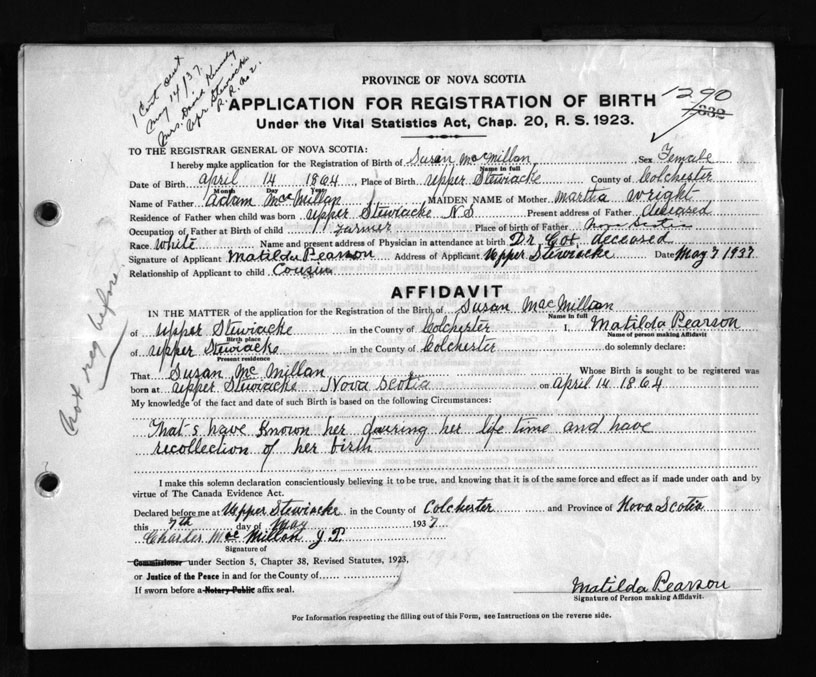 1 Cert sent
May 14/37.
Mrs. David Kennedy
Upr Stewiacke
R.R. No 2.
PROVINCE OF NOVA SCOTIA
APPLICATION FOR REGISTRATION OF BIRTH
1290
7332
Under the Vital Statistics Act, Chap. 20, R. S. 1923.
TO THE REGISTRAR GENERAL OF NOVA SCOTIA:
I hereby make application for the Registration of Birth of Susan MacMillan, Sex Female
Name in full
Date of Birth April 14 1864 Place of Birth Upper Stewiacke County of Colchester
Month Day Year
Name of Father Adam MacMillan, MAIDEN NAME of Mother Martha Wright
Residence of Father when child was born Upper Stewiacke N.S Present address of Father deceased
Occupation of Father at Birth of child Farmer Place of birth of Father Nova Scotia
Race White Name and present address of Physician in attendance at birth Dr Cox. deceased
Signature of Applicant Matilda Pearson Address of Applicant Upper Stewiacke Date May 7 1937
Relationship of Applicant to child Cousin
Not reg before
AFFIDAVIT
IN THE MATTER of the application for the Registration of the Birth of Susan MacMillan
Name in full
of Upper Stewiacke in the County of Colchester I, Matilda Pearson
Birth place Name of person making Affidavit
of Upper Stewiacke in the County of Colchester do solemnly declare:
Present residence
That Susan McMillan Whose Birth is sought to be registered was
born at Upper Stewiacke Nova Scotia on April 14 1864
My knowledge of the fact and date of such Birth is based on the following Circumstances:
That s have known her dauring her life time and have
recollection of her birth
I make this solemn declaration conscientiously believing it to be true, and knowing that it is of the same force and effect as if made under oath and by
virtue of The Canada Evidence Act.
Declared before me at Upper Stewiacke in the County of Colchester and Province of Nova Scotia
this 7th day of May 1937
Charles MacMillan J.P.
Signature of
Commissioner under Section 5, Chapter 38, Revised Statutes, 1923,
or Justice of the Peace in and for the County of
If sworn before a Notary Public affix seal.
Matilda Pearson
Signature of Person making Affidavit.
For Information respecting the filling out of this Form, see Instructions on the reverse side.